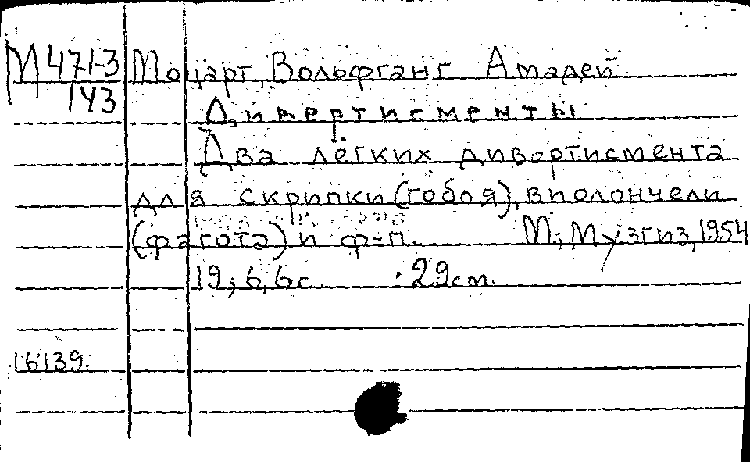 М471-3 Моцарт, Вольфганг Амадей.
143 Дивертисменты
Два лёгких дивертисмента
для скрипки (гобоя), виолончели
(фагота) и ф-п. М., Музгиз, 1954
19, 6, 6 с. 29 см.
16139.